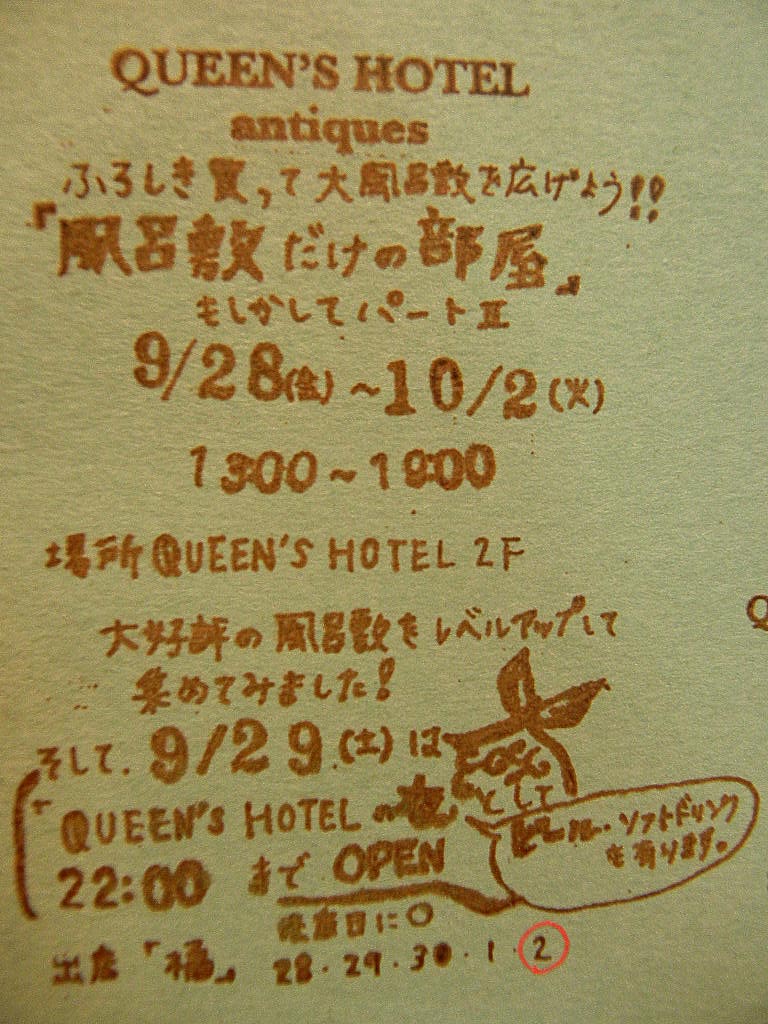 QUEEN'S HOTEL
antiques
ふろしき買って大風呂敷を広げよう!!
『風呂敷だけの部屋』
もしかしてパートⅡ
9/28(金)~10/2(火)
13:00~19:00
場所 QUEEN'S HOTEL 2F
大好評の風呂敷をレベルアップして
集めてみました!
そして、9/29(土)は
「QUEEN'S HOTELの夜」として
ビール・ソフトドリンク
も有ります。
22:00 まで OPEN
在店日に○
出店「橘」 28・29・30・1・2